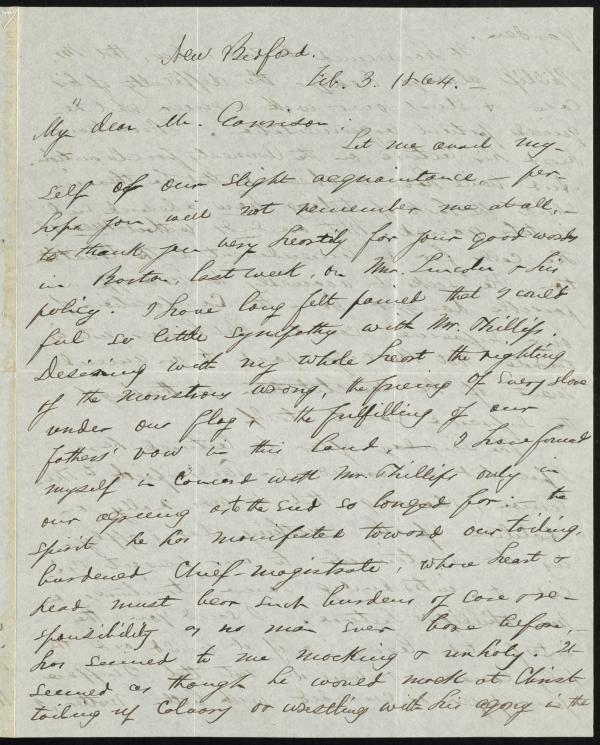 New Bedford.
Feb. 3. 1864.
My dear Mr. Garrison.
Let me avail my-
self of our slight acquaintance, - per-
haps you will not remember me at all, -
to thank you very heartily for your good words
in Boston, last week, on Mr. Lincoln & his
policy. I have long felt pained that I could
feel so little sympathy with Mr. Phillips.
Desiring with my whole heart the righting
of the monstrous wrong, the freeing of every slave
under our flag, the fulfilling of our
fathers' vow in this land, - I have found
myself in concord with Mr. Phillips only in
our agreeing as to the end so longed for; - the
spirit he has manifested toward our toiling,
burdened Chief-magistrate, whose heart &
head must bear such burdens of care & re-
sponsibility as no man ever bore before, -
has seemed to me mocking & unholy. It
seemed as though he would mock at Christ
toiling up Calvary or wrestling with his agony in the